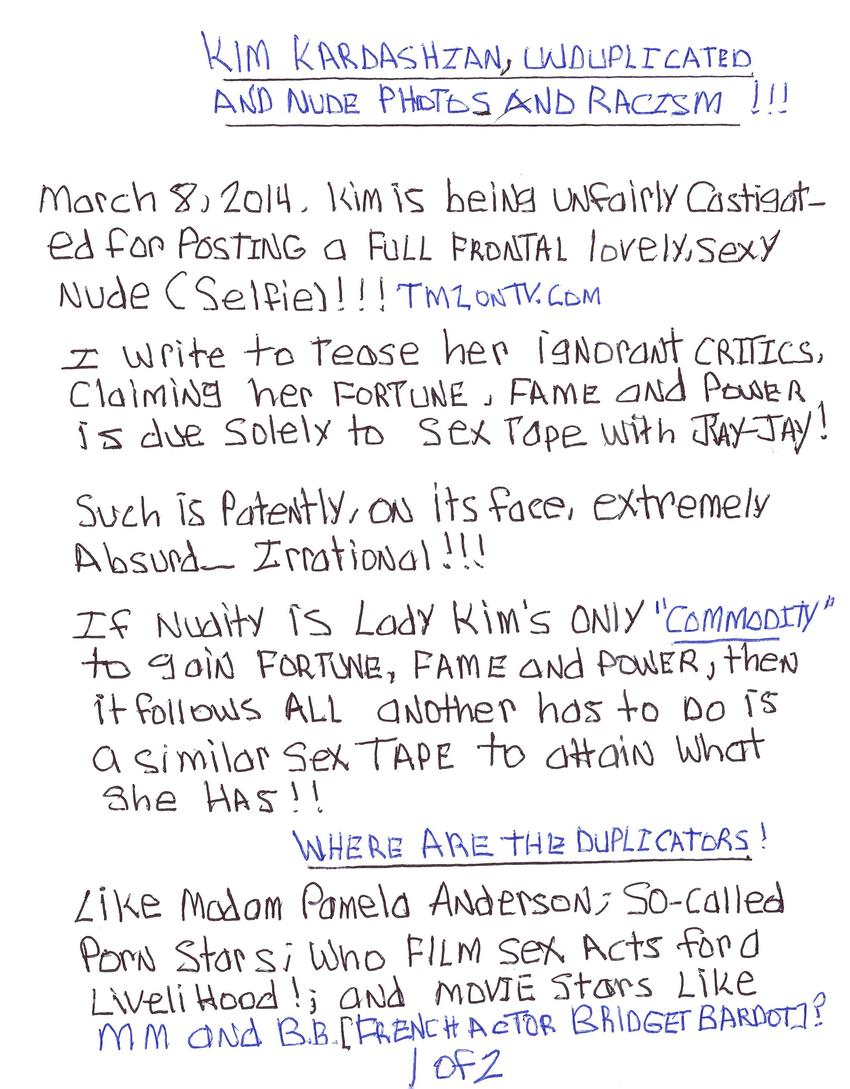 KIM KARDASHIAN, UNDUPLICATED
AND NUDE PHOTOS AND RACISM !!!
March 8, 2014. Kim is being UNfairly Castigat-
ed for POSTING a FULL FRONTAL lovely, sexy
Nude (Selfie)!!! TMZONTV.COM
I write to tease her igNorant CRITICS,
Claiming her FORTUNE, FAME and POWER
is due Solely to Sex Tape with RAY-JAY!
Such is Patently, ON its face, extremely
Absurd— Irrational!!!
If Nudity is Lady Kim's ONLY "COMMODITY"
to gain FORTUNE, FAME and POWER, then
it follows ALL another has to Do is
a similar Sex TAPE to attain what
She HAS!!
WHERE ARE THE DUPLICATORS!
Like Madam Pamela Anderson; So-Called
Porn Stars; Who FILM Sex Acts for a
LiveliHood!; and MOVIE Stars Like
MM and B.B. [FRENCH ACTOR BRIDGET BARDOT]?
1 OF 2